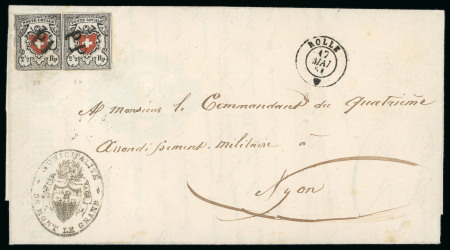 POSTE LOCALE POSTE LOCALE
2½ Rp 2½ Rp
ROLLE
17
MAI
51
A Monsieur le Commandant du Quatrième
Arrondissement militaire à
Nyon
MUNICIPALITÉ
DE MONT LE GRAND